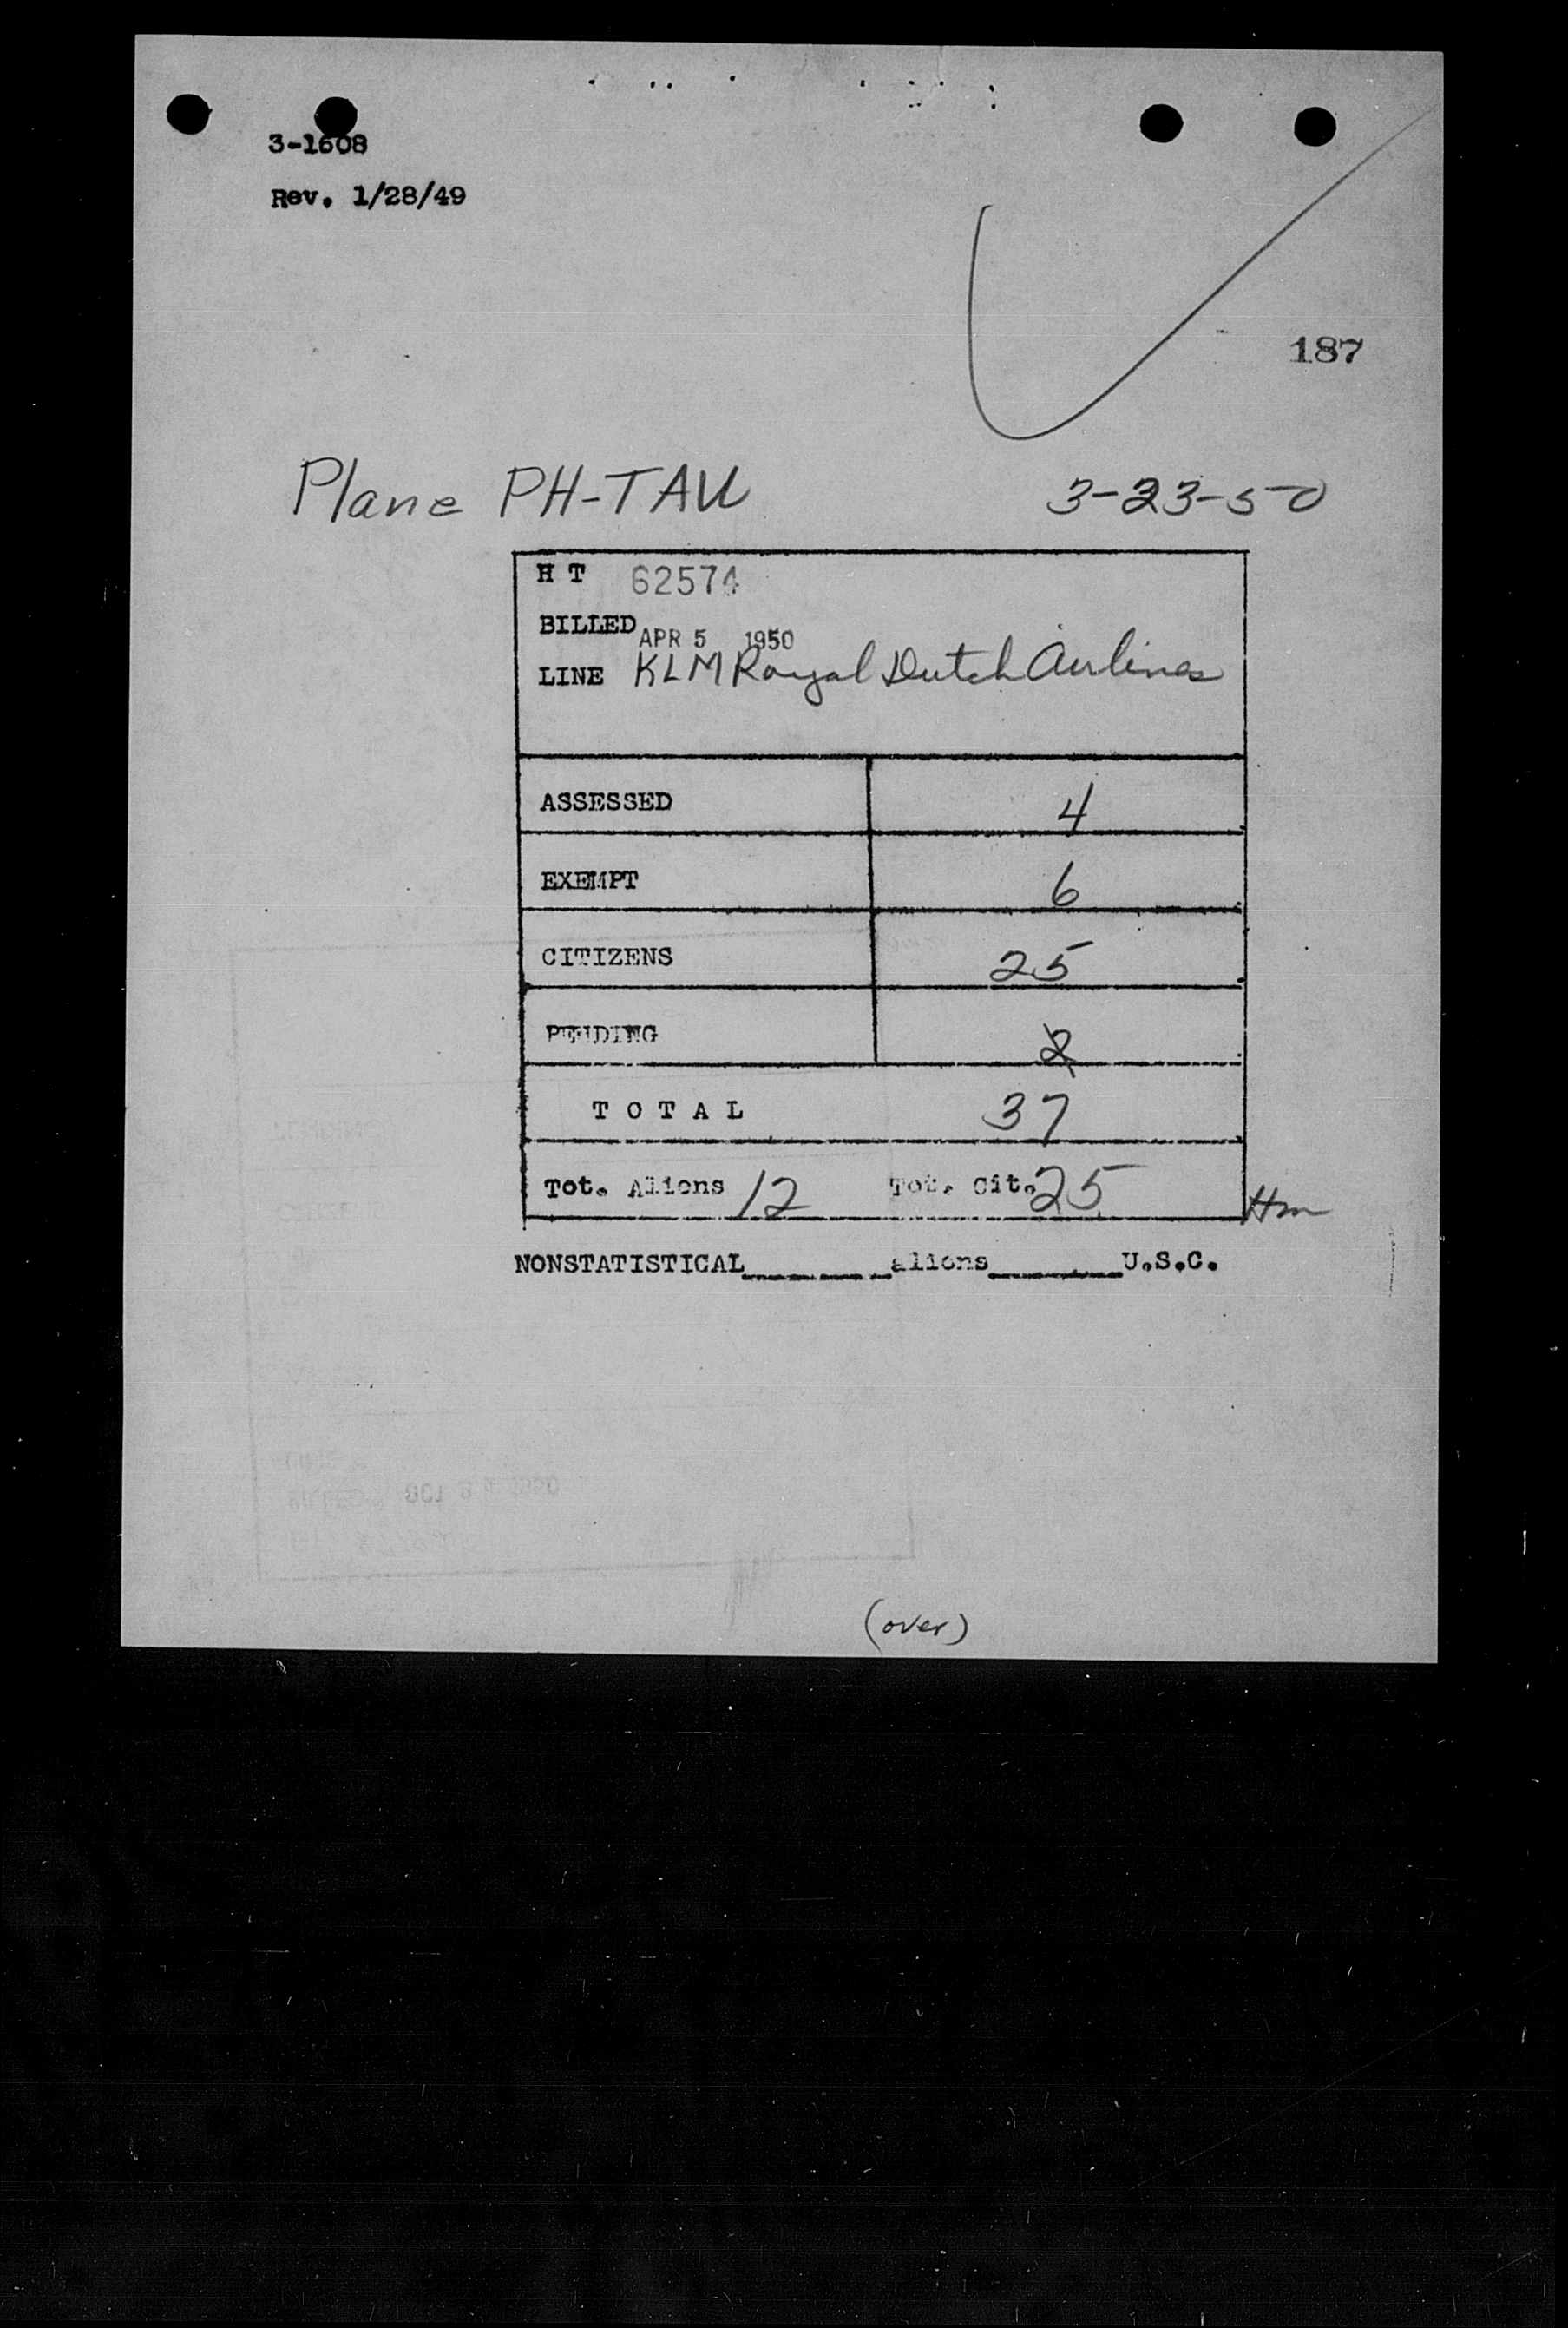 3-1608
Rev. 1/28/49
187
Plane PH-TAU 3-23-50
H T 62574
BILLED APR 5 1950
LINE KLM Royal Dutch Airlines
ASSESSED 4
EXEMPT 6
CITIZENS 25
PENDING 2
T O T A L 37
Tot. Aliens 12 Tot. Cit. 25
Hm
NONSTATISTICAL________aliens________U.S.C.
(over)